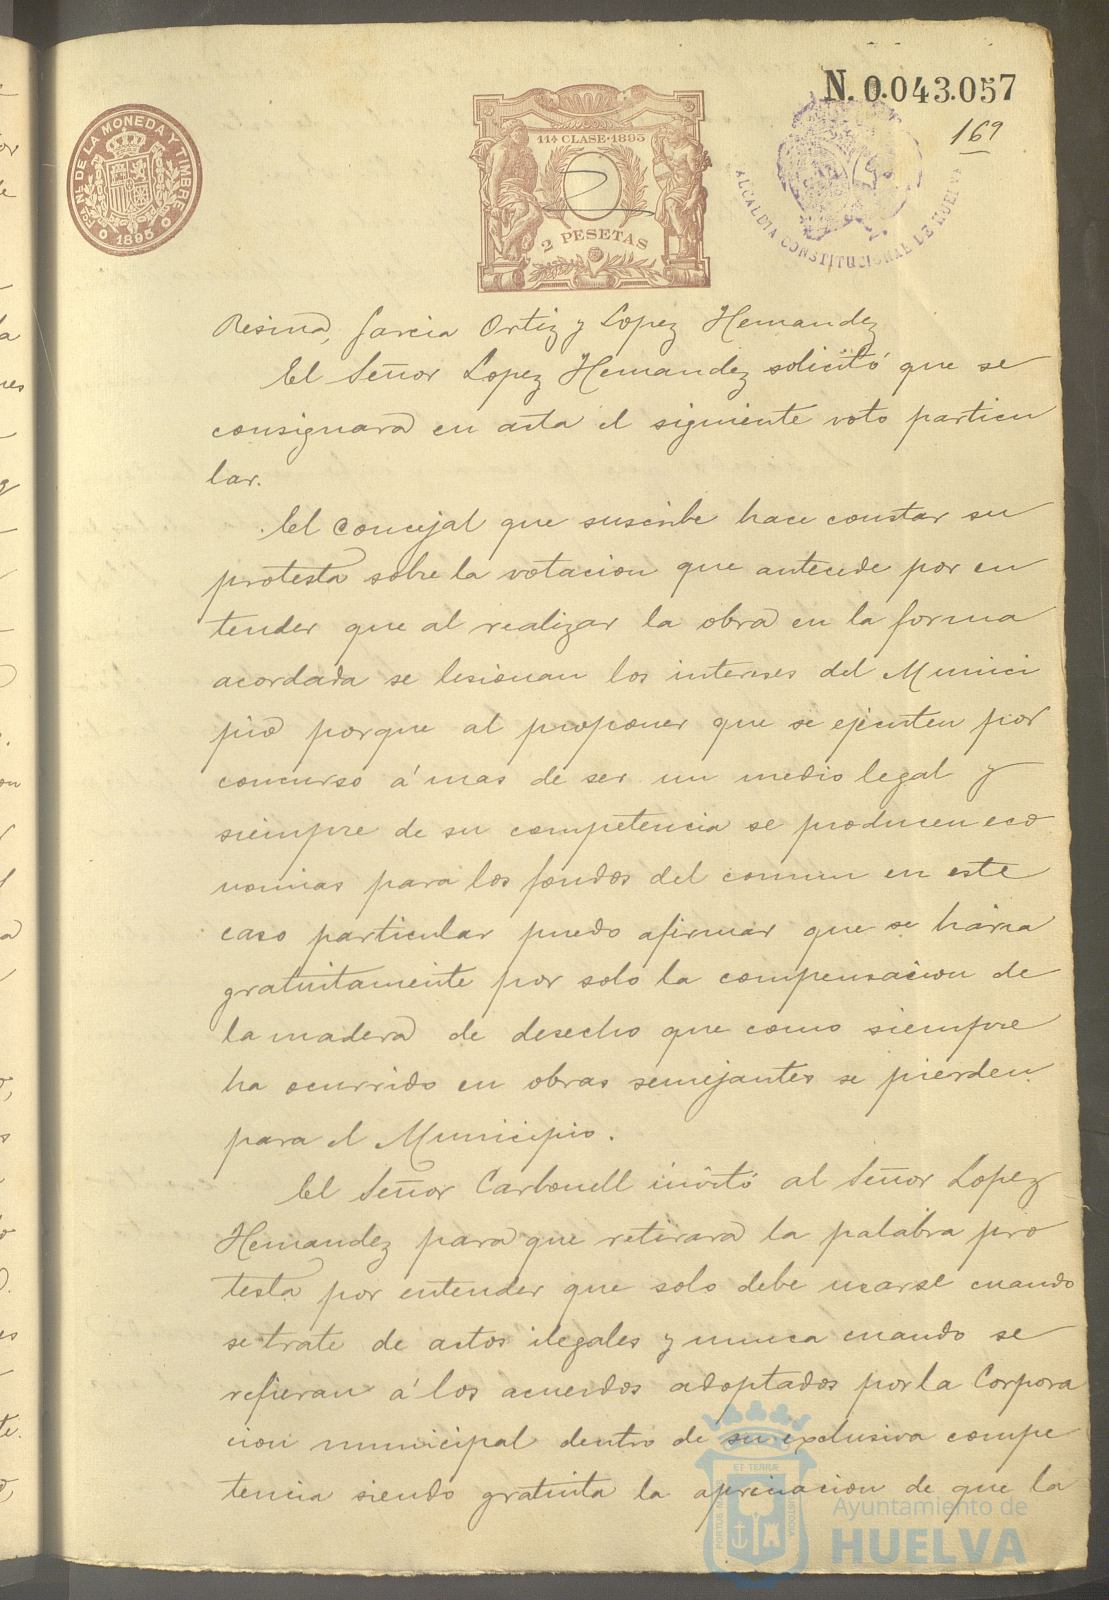 N. 0.043.057
169
FCA. NL. DE LA MONEDA Y TIMBRE
1895
11ª CLASE·1895
2 PESETAS
ALCALDIA CONSTITUCIONAL DE HUELVA
Resina, Garcia Ortiz y Lopez Hernandez
El Señor Lopez Hernandez solicitó que se
consignara en acta el siguiente voto particu
lar.
El Concejal que suscribe hace constar su
protesta sobre la votacion que antecede por en
tender que al realizar la obra en la forma
acordada se lesionan los intereses del Munici
pio porque al proponer que se ejecuten por
concurso á mas de ser un medio legal y
siempre de su competencia se producen eco
nomias para los fondos del comun en este
caso particular puedo afirmar que se haria
gratuitamente por solo la compensacion de
la madera de desecho que como siempre
ha ocurrido en obras semejantes se pierden
para el Municipio.
El Señor Carbonell invitó al Señor Lopez
Hernandez para que retirara la palabra pro
testa por entender que solo debe usarse cuando
se trate de actos ilegales y nunca cuando se
refieran á los acuerdos adoptados por la Corpora
cion municipal dentro de su exclusiva compe
tencia siendo gratuita la apreciacion de que la
Ayuntamiento de
HUELVA